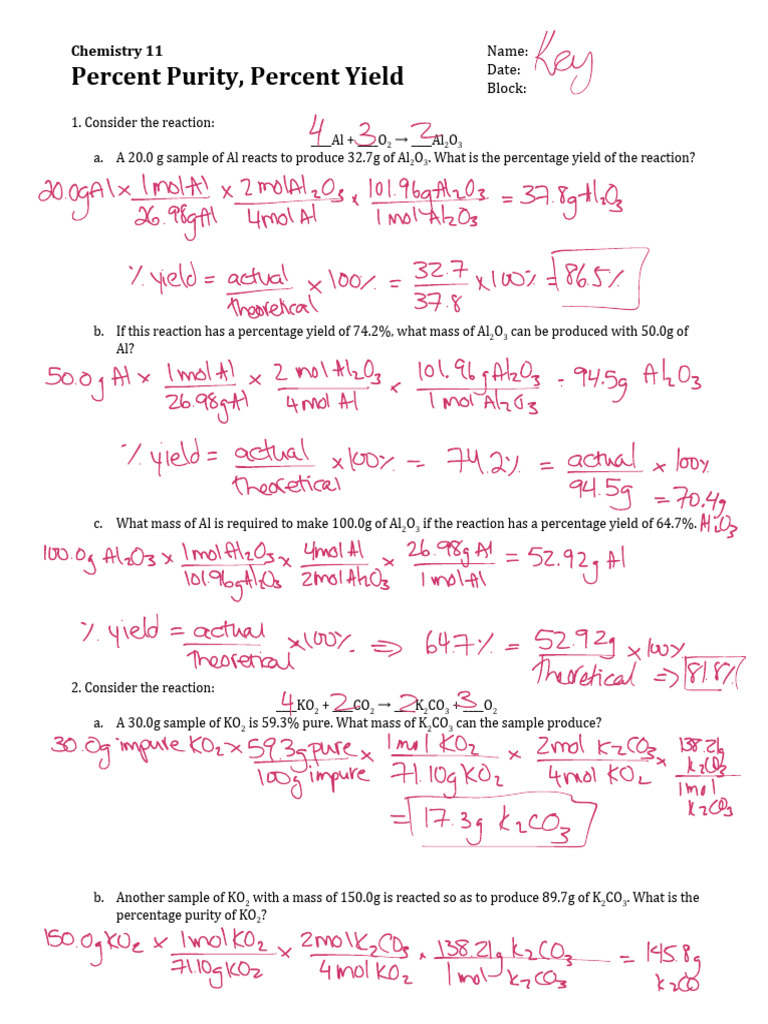 Chemistry 11
Name: Key
Percent Purity, Percent Yield
Date:
Block:
1. Consider the reaction:
4 Al + 3 O₂ → 2 Al₂O₃
a. A 20.0 g sample of Al reacts to produce 32.7g of Al₂O₃. What is the percentage yield of the reaction?
20.0gAl x 1molAl/26.98gAl x 2molAl₂O₃/4molAl x 101.96gAl₂O₃/1molAl₂O₃ = 37.8gAl₂O₃
% yield = actual/theoretical x 100% = 32.7/37.8 x 100% = 86.5%
b. If this reaction has a percentage yield of 74.2%, what mass of Al₂O₃ can be produced with 50.0g of
Al?
50.0g Al x 1molAl/26.98gAl x 2molAl₂O₃/4molAl x 101.96gAl₂O₃/1molAl₂O₃ = 94.5g Al₂O₃
% yield = actual/theoretical x 100% = 74.2% = actual/94.5g x 100%
= 70.4g
c. What mass of Al is required to make 100.0g of Al₂O₃ if the reaction has a percentage yield of 64.7%. Al₂O₃
100.0g Al₂O₃ x 1molAl₂O₃/101.96gAl₂O₃ x 4molAl/2molAl₂O₃ x 26.98gAl/1molAl = 52.92g Al
% yield = actual/Theoretical x 100% => 64.7% = 52.92g/Theoretical x 100% => 81.8%
2. Consider the reaction:
4 KO₂ + 2 CO₂ → 2 K₂CO₃ + 3 O₂
a. A 30.0g sample of KO₂ is 59.3% pure. What mass of K₂CO₃ can the sample produce?
30.0g impure KO₂ x 59.3g pure/100g impure x 1mol KO₂/71.10gKO₂ x 2mol K₂CO₃/4mol KO₂ x 138.21g K₂CO₃/1mol K₂CO₃
= 17.3g K₂CO₃
b. Another sample of KO₂ with a mass of 150.0g is reacted so as to produce 89.7g of K₂CO₃. What is the
percentage purity of KO₂?
150.0gKO₂ x 1molKO₂/71.10gKO₂ x 2molK₂CO₃/4molKO₂ x 138.21g K₂CO₃/1mol K₂CO₃ = 145.8g
K₂CO